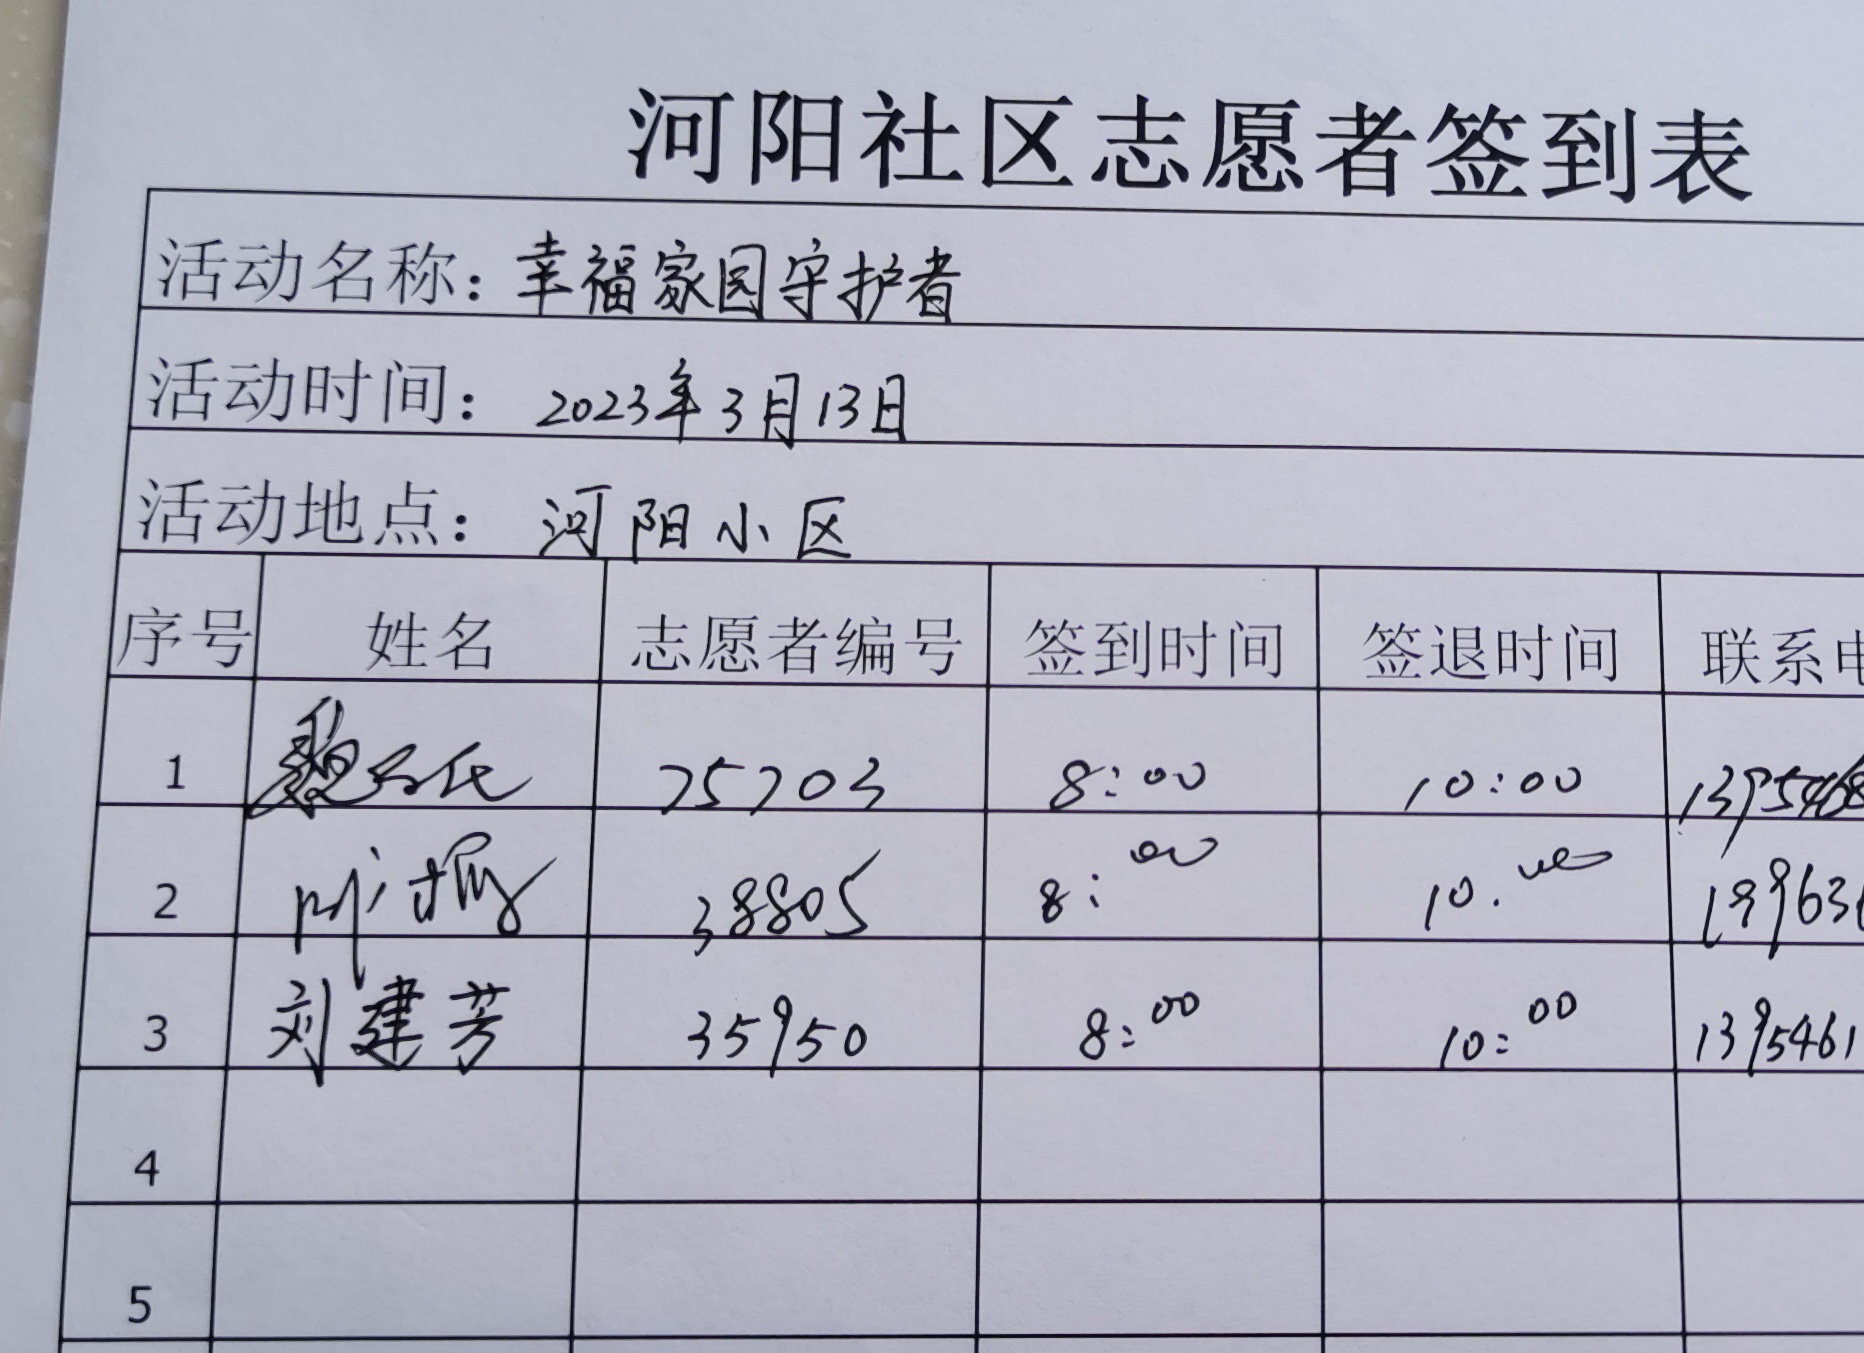 河阳社区志愿者签到表
活动名称：幸福家园守护者
活动时间：2023年3月13日
活动地点：河阳小区
序号 姓名 志愿者编号 签到时间 签退时间 联系电
1 75703 8:00 10:00 1395468
2 38805 8:00 10.00 199636
3 刘建芳 35950 8:00 10:00 1395461
4
5